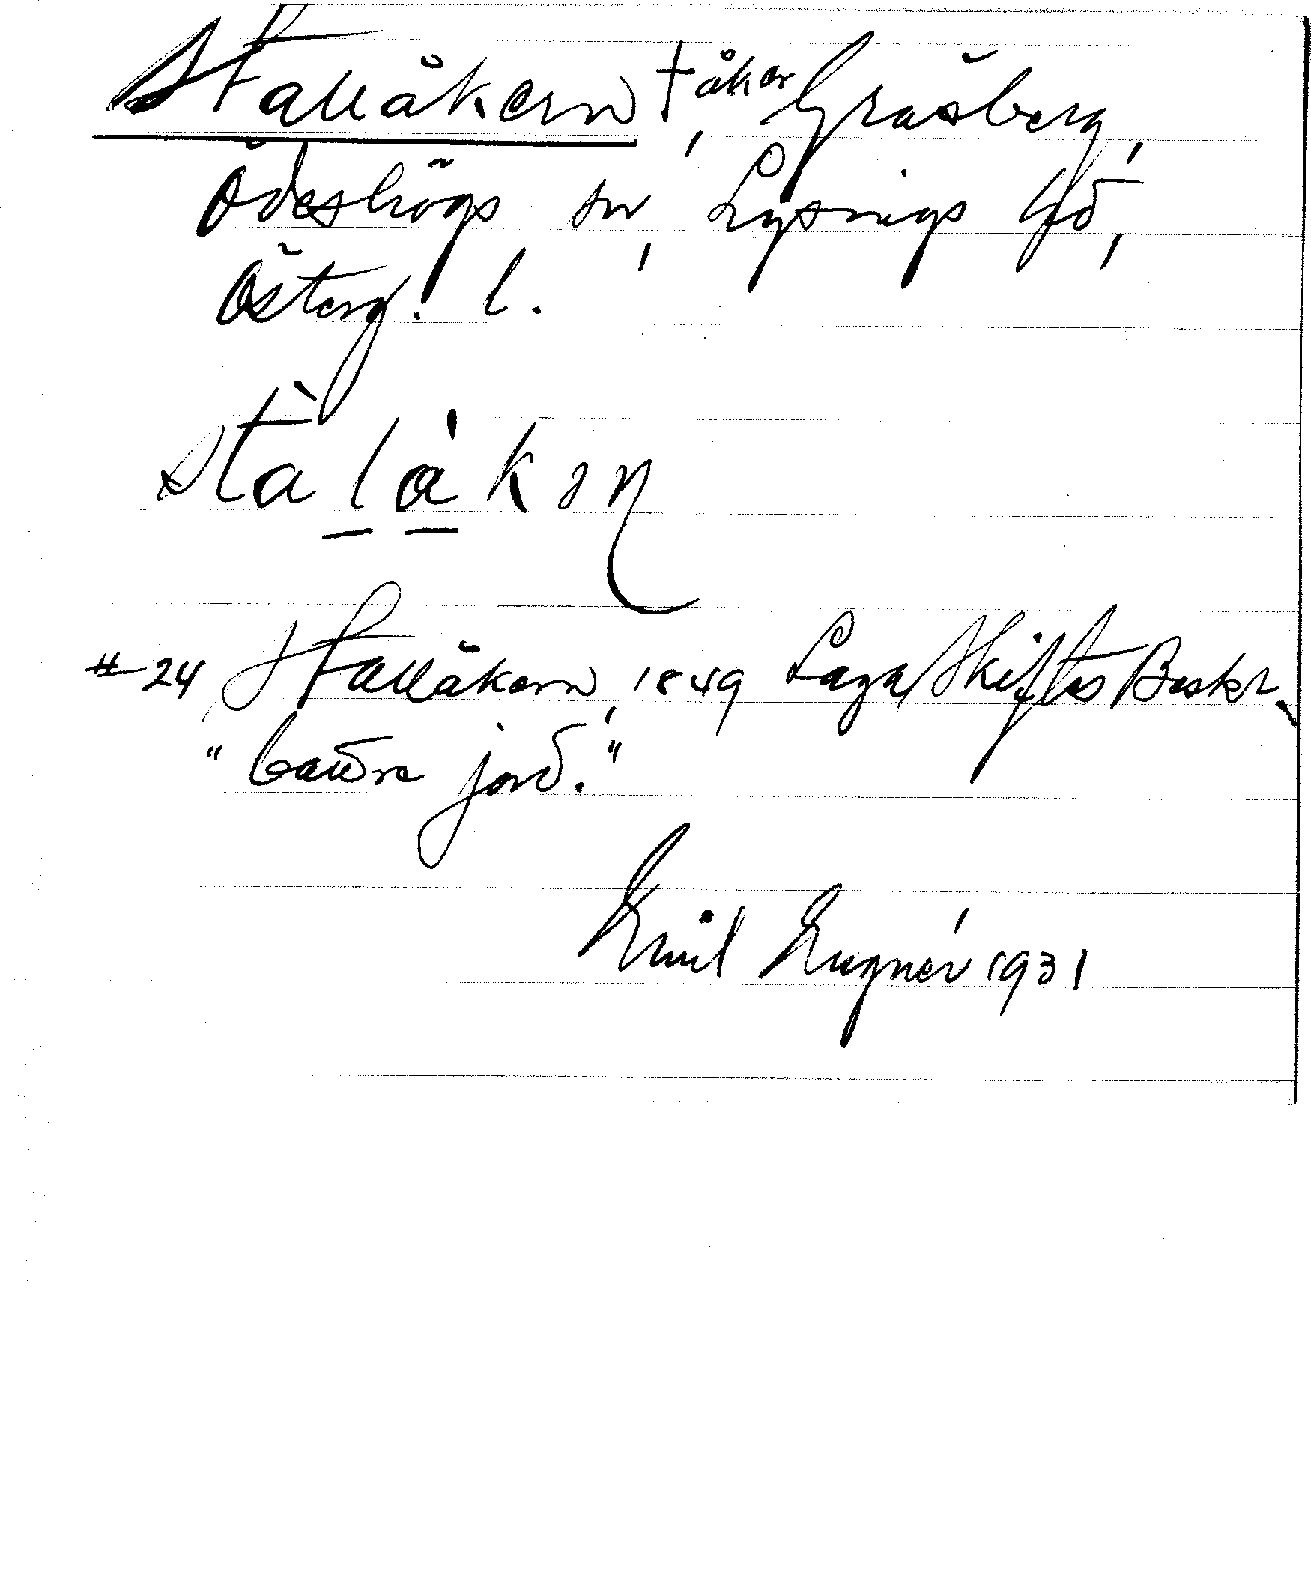 Stallåkern † åker, Gräsberg,
Ödeshögs sn, Lysings hd,
Österg. l.
stàlåkən
#24 Stallåkern, 1849 Laga Skiftes Beskr.
"bättre jord."
Emil Lugnér 1931